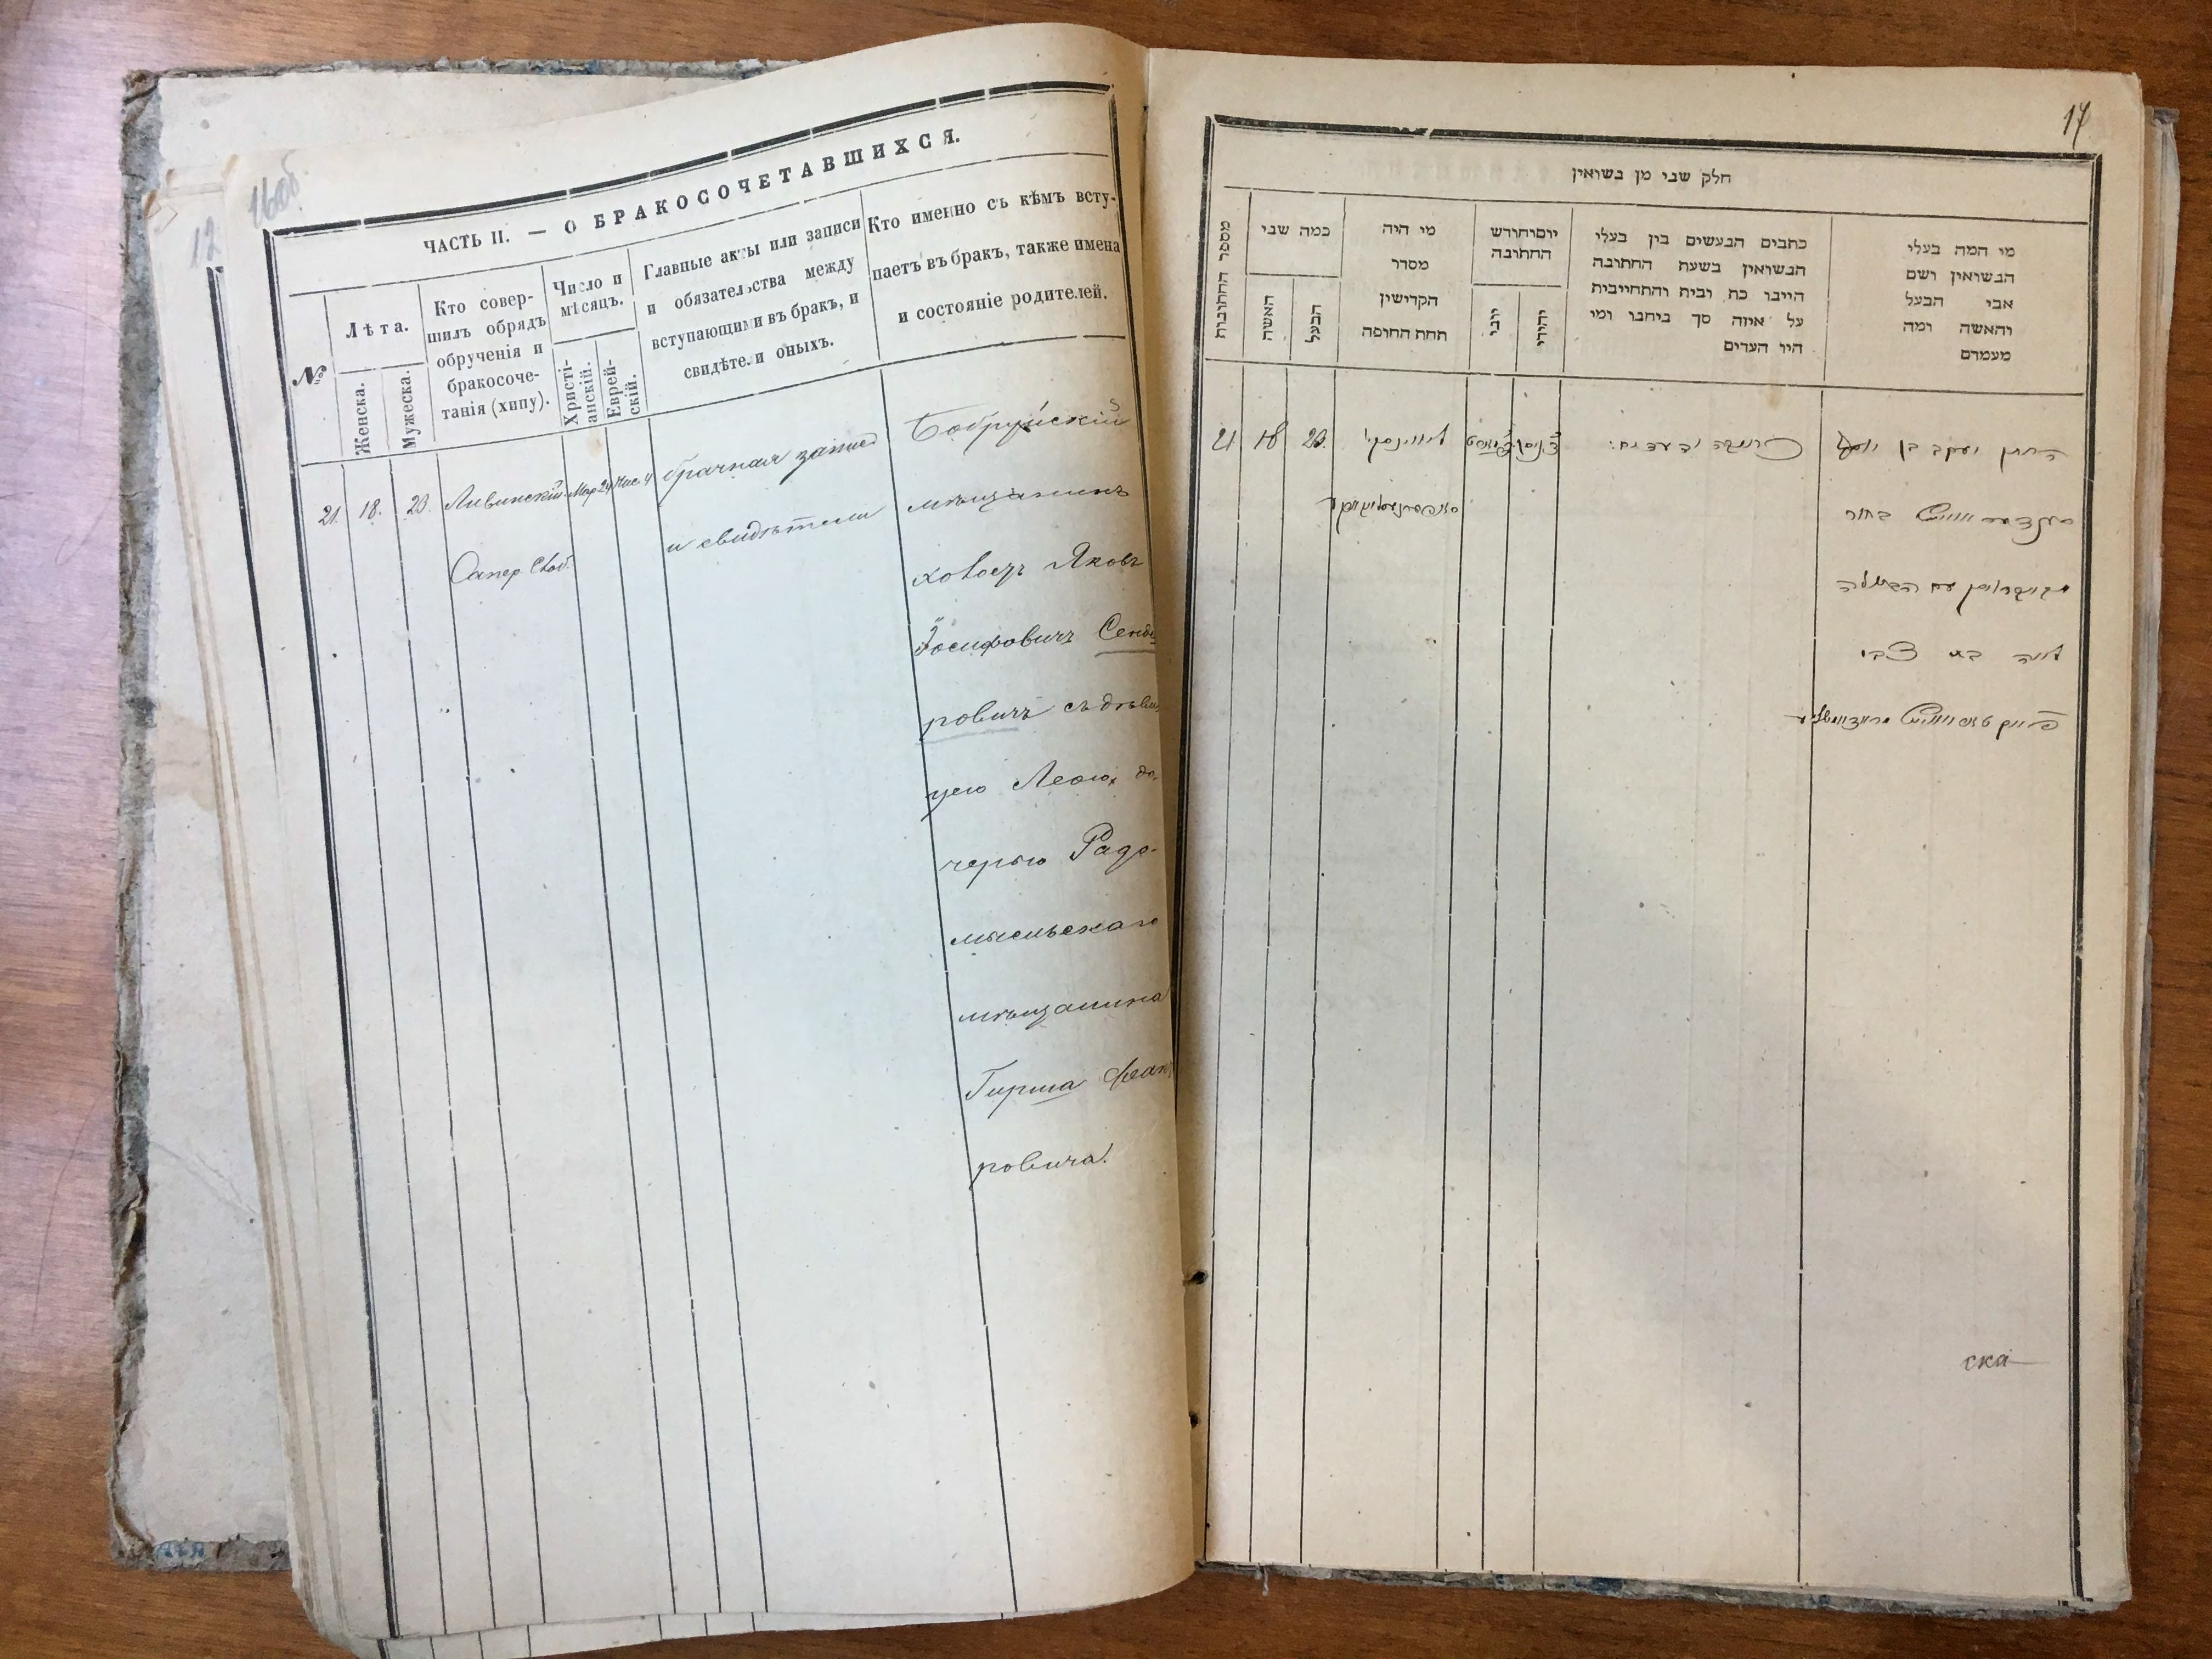 16об.
12
ЧАСТЬ II. — О БРАКОСОЧЕТАВШИХСЯ.
№
Лѣта.
Женска.
Мужеска.
Кто совер-
шилъ обрядъ
обрученія и
бракосоче-
танія (хипу).
Число и
мѣсяцъ.
Христі-
анскій.
Еврей-
скій.
Главные акты или записи
и обязательства между
вступающими въ бракъ, и
свидѣтели оныхъ.
Кто именно съ кѣмъ всту-
паетъ въ бракъ, также имена
и состояніе родителей.
21.
18.
23.
Ливинскій
Сапер. Слоб.
Мар 24
Нис. 4
брачная запись
и свидѣтели
Бобруйскій
мѣщанинъ
холостъ Яковъ
Іосифовичъ
ровичъ съ дѣви
цею Леею, до
черью Радо-
мысльскаго
мѣщанина
Гирша
ровича.
17
חלק שני מן נשואין
מספר החתונות
כמה שני
האשה
הבעל
מי היה
מסדר
הקדישין
תחת החופה
יום וחודש
החתונה
יוני
יהודי
כתבים הנעשים בין בעלי
הנשואין בשעת החתונה
הייבו כח ובית והתחייבית
על איזה סך ביחבו ומי
היו העדים
מי המה בעלי
הנשואין ושם
אבי הבעל
והאשה ומה
מעמדם
21
18
23
ליווינסקי
כתובה ועדים
החתן יעקב בן יוסף
בחור
עם הבתולה
לאה בת צבי
ска